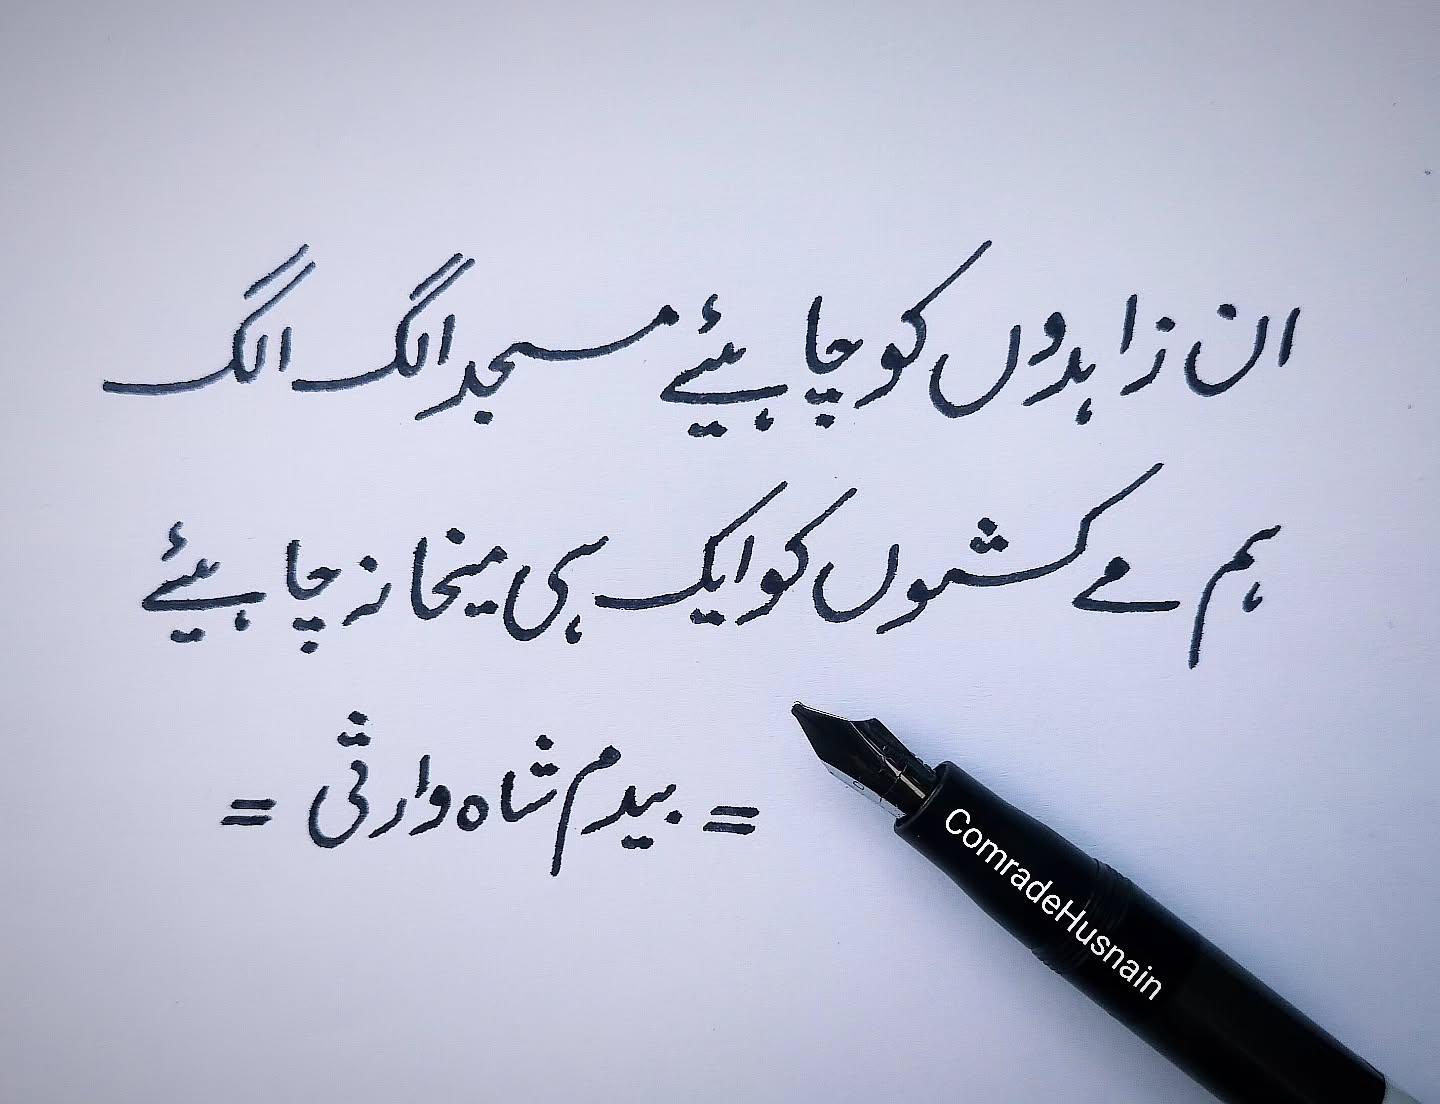 ان زاہدوں کو چاہیئے مسجد الگ الگ
ہم مے کشوں کو ایک ہی میخانہ چاہیئے
= بیدم شاہ وارثی =
ComradeHusnain